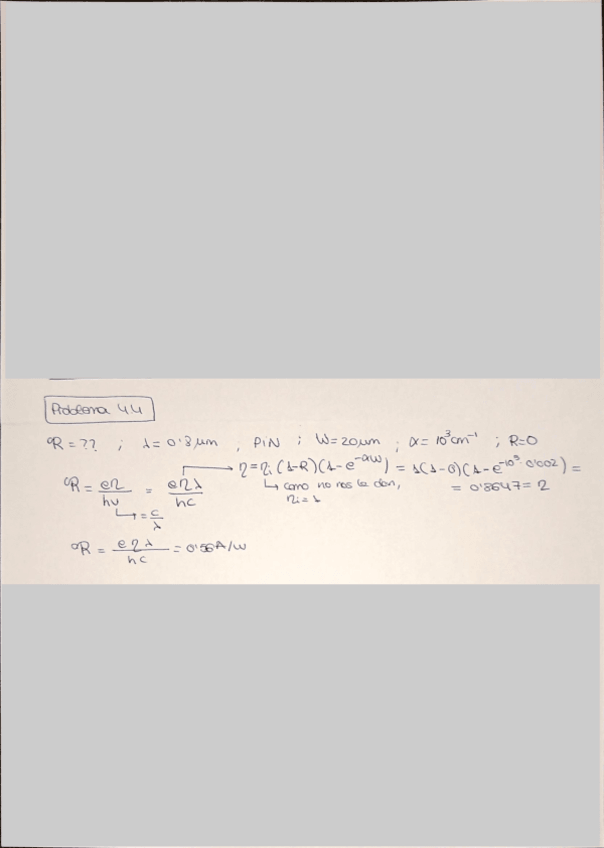 Problema 4.4
R = ?? ; λ = 0'8 μm , PIN ; W = 20 μm ; α = 10³ cm⁻¹ ; R = 0
R = eη/hν = eηλ/hc → η = ηi (1-R)(1-e^-αW) = 1(1-0)(1-e^-10³·0'002) =
↳ = c/λ ↳ como no nos la dan, ηi = 1 = 0'8647 = η
R = eηλ/hc = 0'56 A/W